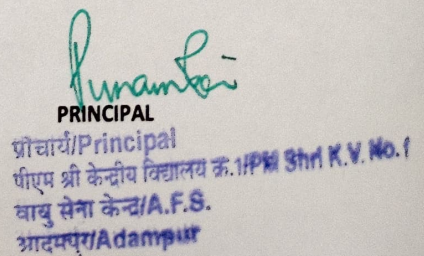 Punam Rai
PRINCIPAL
प्राचार्य/Principal
पीएम श्री केन्द्रीय विद्यालय क्र.1/PM Shri K.V. No.1
वायु सेना केन्द्र/A.F.S.
आदमपुर/Adampur